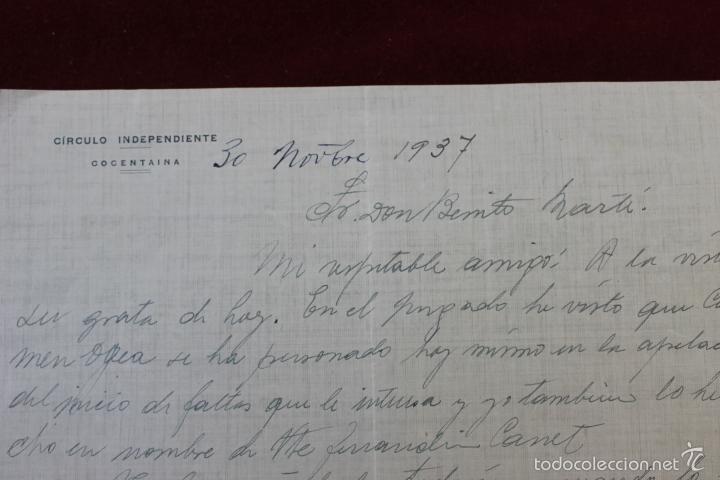 CÍRCULO INDEPENDIENTE
COCENTAINA
30 Novbre 1937
Sr. Don Benito Martí.
Mi respetable amigo: A la vist
su grata de hoy. En el juzgado he visto que Ca
men se ha personado hoy mismo en la apelac
del juicio de faltas que le interesa y yo tambien lo he
cho en nombre de Vte Canet
todocoleccion.net